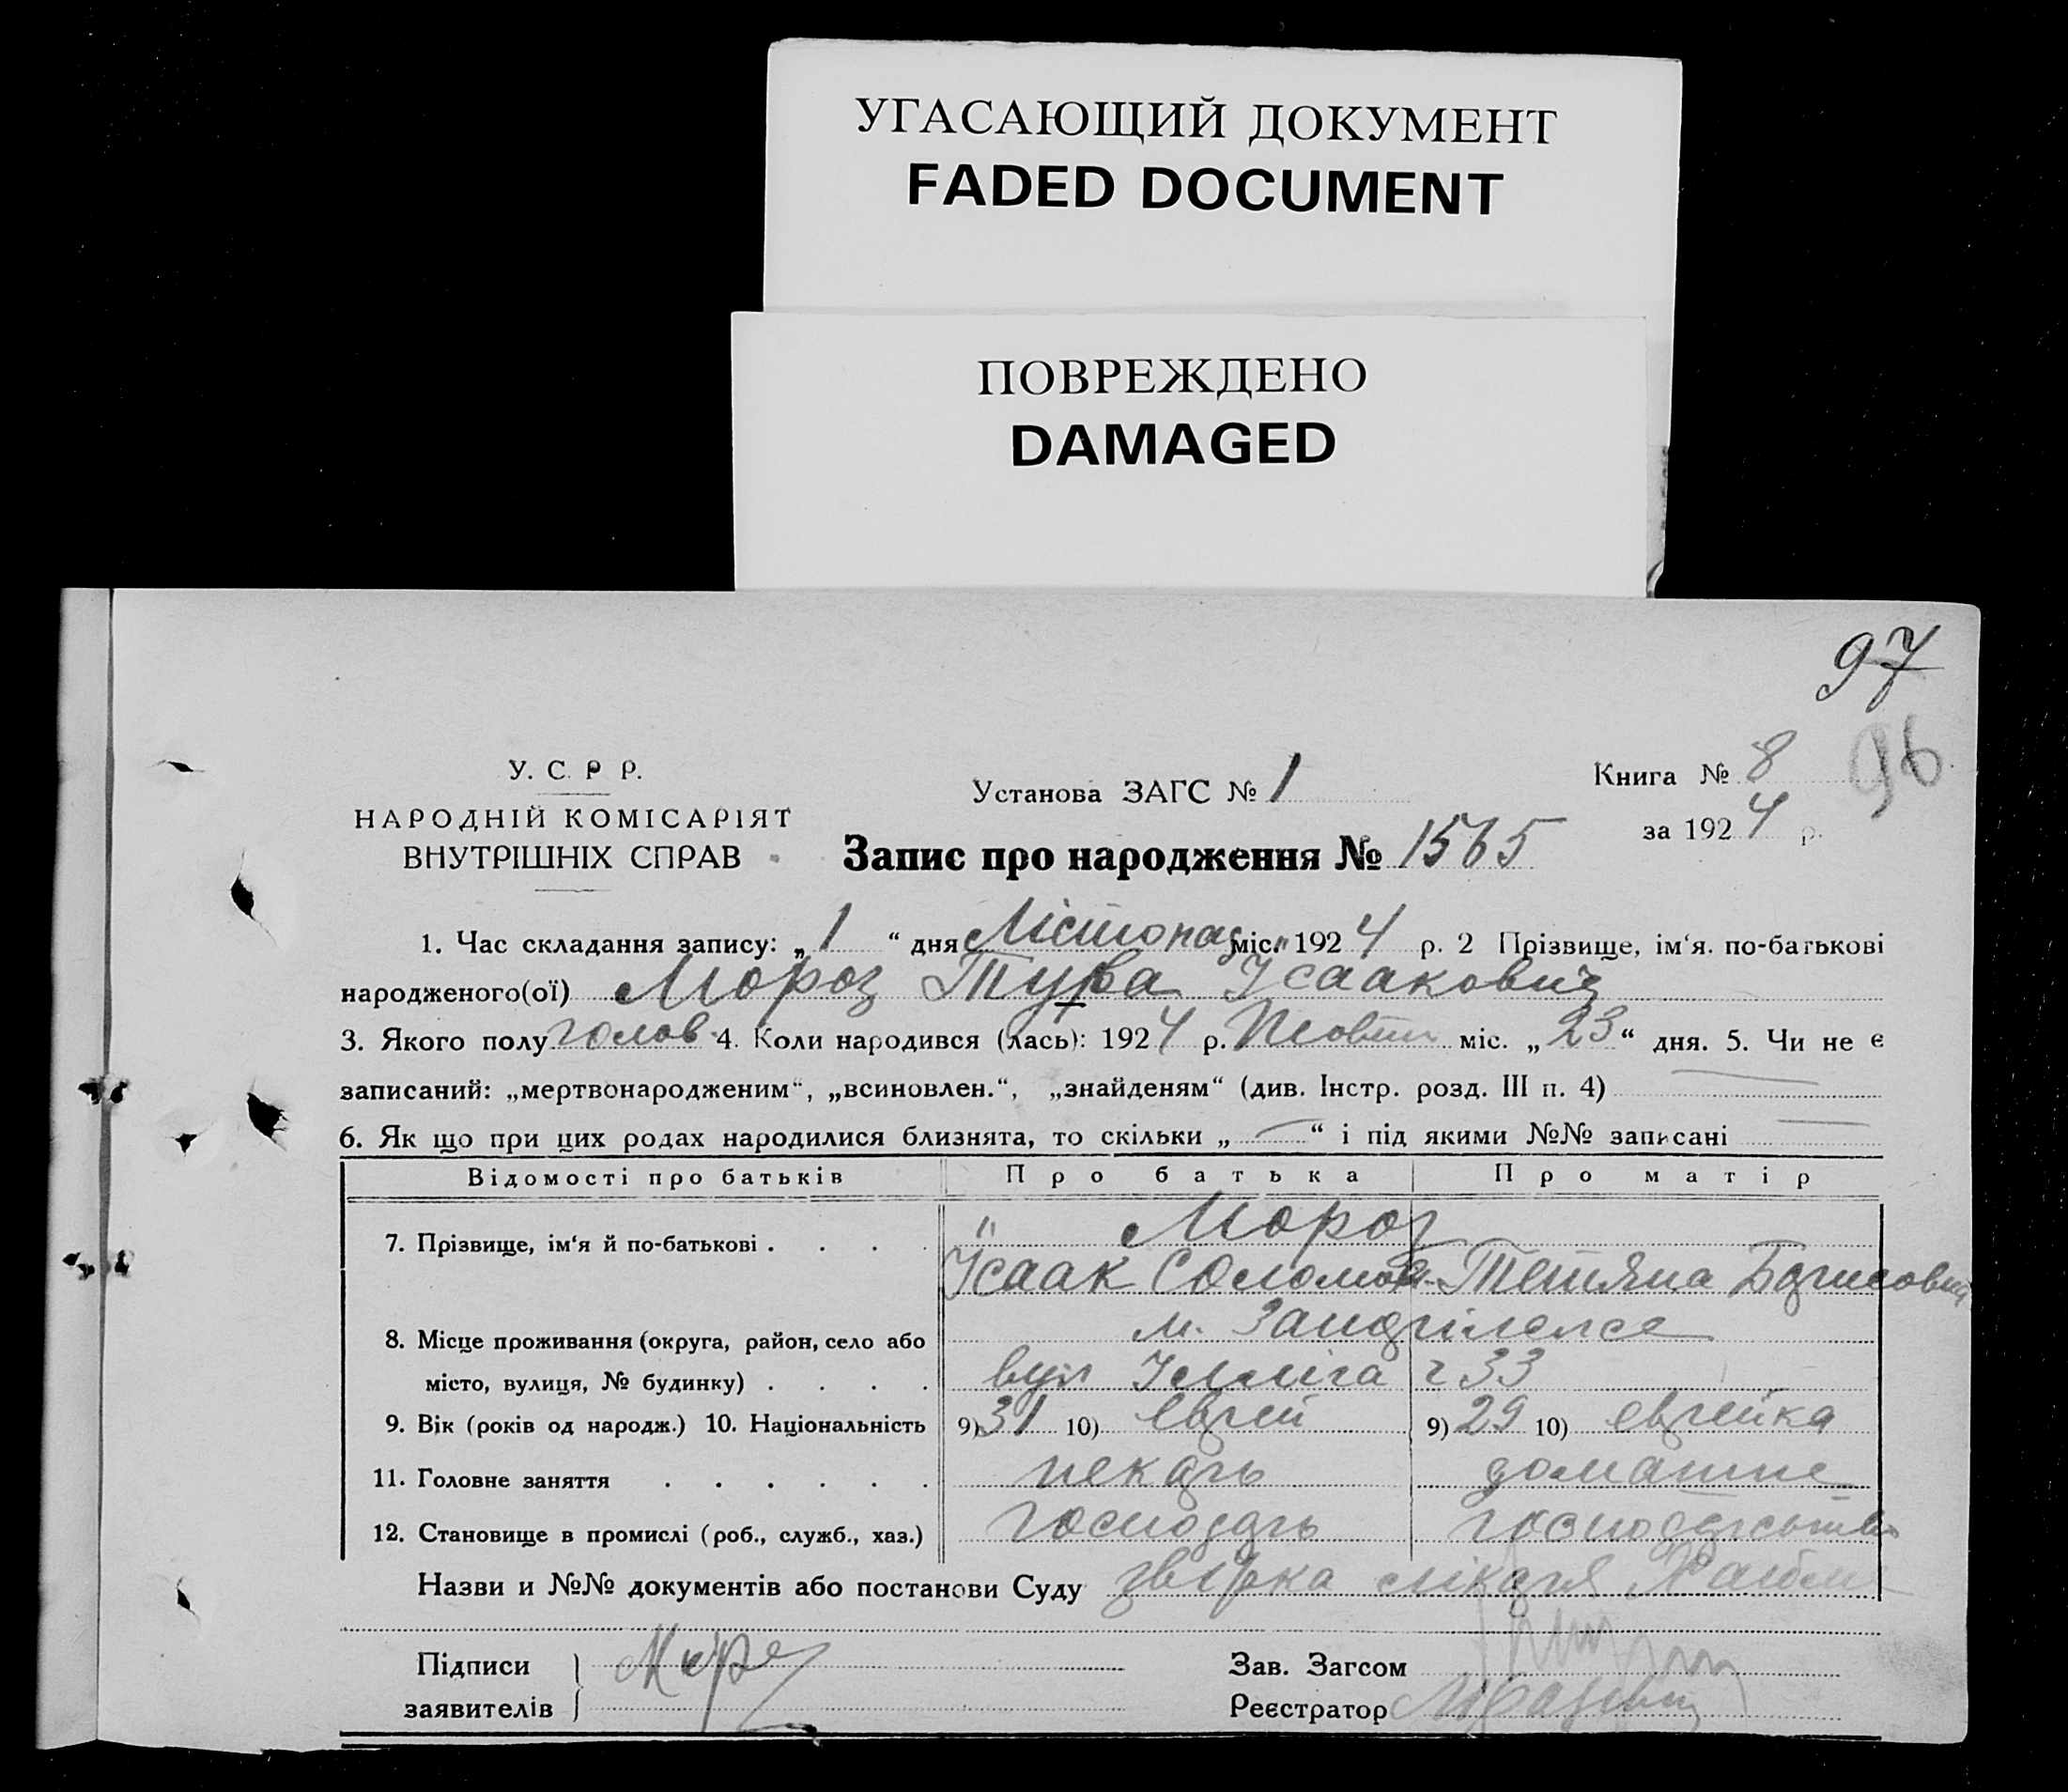 УГАСАЮЩИЙ ДОКУМЕНТ
FADED DOCUMENT
ПОВРЕЖДЕНО
DAMAGED
97
96
У. С. Р Р.
НАРОДНІЙ КОМІСАРІЯТ
ВНУТРІШНІХ СПРАВ
Установа ЗАГС № 1
Книга № 8
за 1924 р.
Запис про народження № 1565
1. Час складання запису: „ 1 “ дня Лістопад міс. 1924 р. 2 Прізвище, ім‘я. по-батькові
народженого(ої) Мороз Исаакович
3. Якого полу голов. 4. Коли народився (лась): 1924 р. Жовтн міс. „ 23 “ дня. 5. Чи не є
записаний: „мертвонародженим“, „всиновлен.“, „знайденям“ (див. Інстр. розд. III п. 4)
6. Як що при цих родах народилися близнята, то скільки „ — “ і під якими №№ записані —
Відомості про батьків Про батька Про матір
7. Прізвище, ім‘я й по-батькові . . . . Мороз
Исаак Соломов. Тетяна Борисовна
8. Місце проживання (округа, район, село або м.
місто, вулиця, № будинку) . . . . вул Ілліча ч 33
9. Вік (років од народж.) 10. Національність 9) 31 10) Еврей 9) 29 10) еврейка
11. Головне заняття . . . . . . пекарь домашне
12. Становище в промислі (роб., служб., хаз.) господарь господарство
Назви и №№ документів або постанови Суду лікаря
Підписи
заявителів
Мороз
Зав. Загсом
Реєстратор